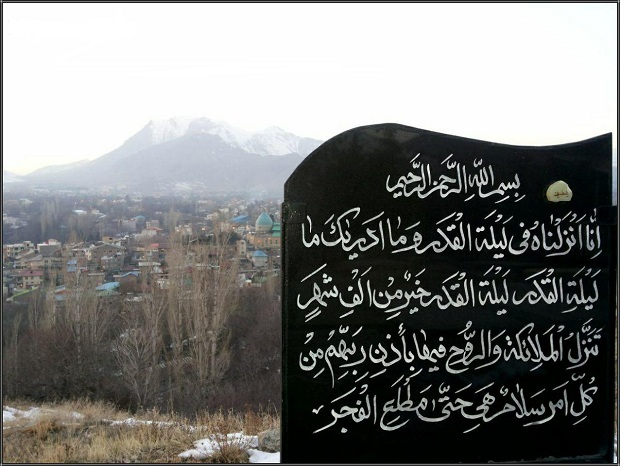 بِسمِ اللهِ الرَّحمنِ الرَّحیمِ
اِنّا اَنزَلناهُ فی لَیلَةِ القَدرِ وَما اَدریکَ ما
لَیلَةُ القَدرِ لَیلَةُ القَدرِ خَیرٌ مِن اَلفِ شَهرٍ
تَنَزَّلُ المَلائِکَةُ وَالرُّوحُ فیها بِأذنِ رَبِّهِم مِن
کُلِّ اَمرٍ سَلامٌ هِیَ حَتّی مَطلَعِ الفَجرِ